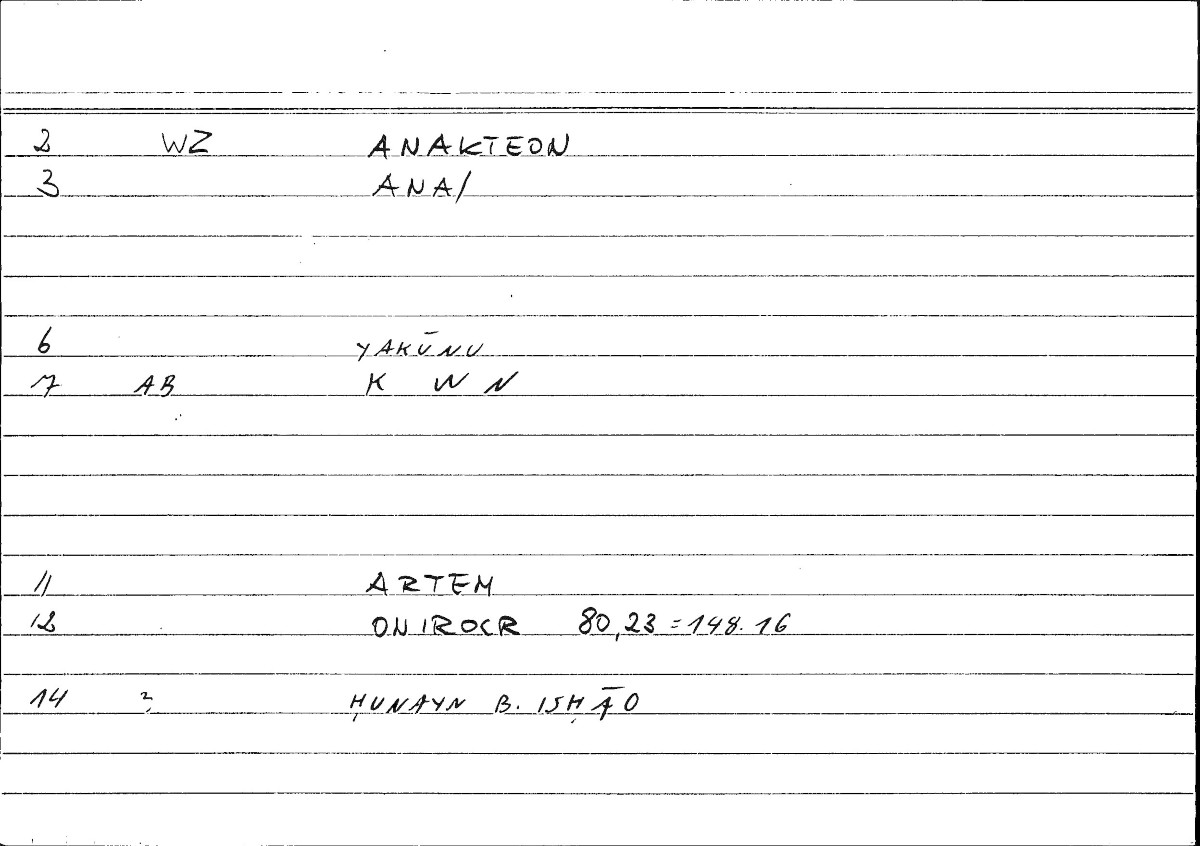 2 WZ ANAKTEON
3 ANA/
6 YAKŪNU
7 AB K W N
11 ARTEM
12 ONIROCR 80,23 = 148.16
14 ḤUNAYN B. ISḤĀQ